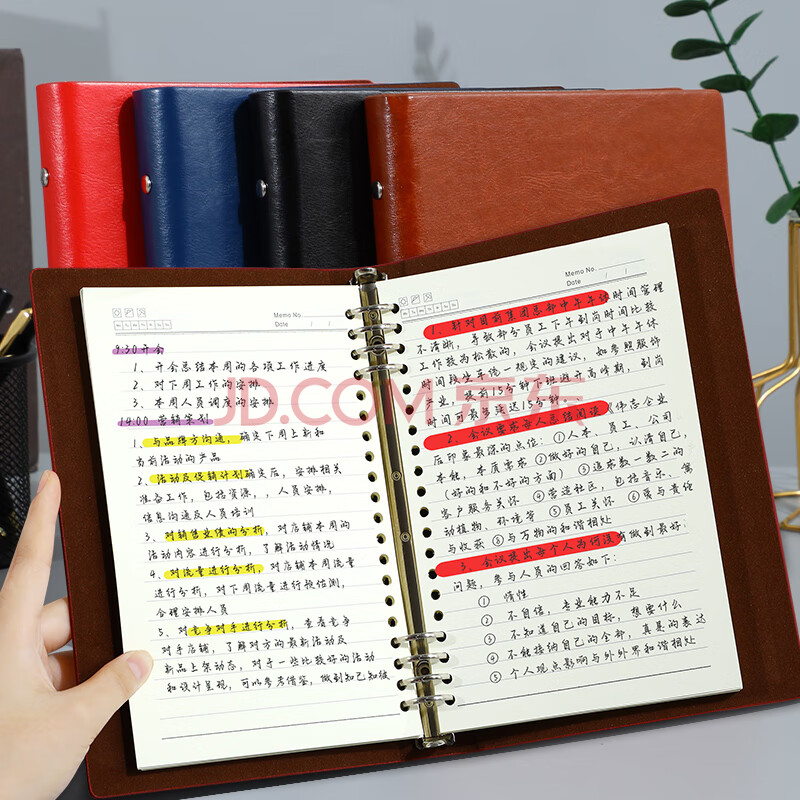 Memo No.
Date / /
9:30 开会
1、开会总结本周的各项工作进度
2、对下周工作的安排
3、本周人员调度的安排
14:00 营销策划
1、与品牌方沟通，确定下周上新和
当前活动的产品
2、活动及促销计划确定后，安排相关
准备工作，包括资源，、人员安排，
信息沟通及人员培训
3、对销售业绩的分析，对店铺本周的
活动内容进行分析，了解活动情况
4、对流量进行分析，对店铺本周流量
进行分析，对下周流量进行预估测，
合理安排人员
5、对竞争对手进行分析，查看竞争
对手店铺，了解对方的最新活动及
新品上架动态，对于一些比较好的活动
和设计呈现，可以参考借鉴，做到知己知彼
Memo No.
Date / /
1、针对目前集团总部中午午休时间管理
不清晰，导致部分员工下午到岗时间比较
工作较为松散的，会议提出对于中午午休
时间段出具统一规定的建议，如参照服饰
企业，提前15分钟下班避开高峰期，到岗
时间可最多延迟15分钟
2、会议需求每人总结阅读《伟志企业
后印象最深的点位：①人本、员工、公司
本能，本质需求 ②做好的自己，认清自己，
（好的和不好的方面） ③追求数一数二的
客户服务关怀 ④营造社区，包括音乐、寓
动植物、环境等 ⑤员工关怀 ⑥
与收获 ⑧与万物的和谐相处
3、会议提出每个人为何没有做到最好：
问题，参与人员的回答如下：
① 惰性
② 不自信，专业能力不足
③ 不知道自己的目标，想要什么
④ 不能接纳自己的全部，真是的表达
⑤ 个人观点影响与外外界和谐相处
JD.COM 京东